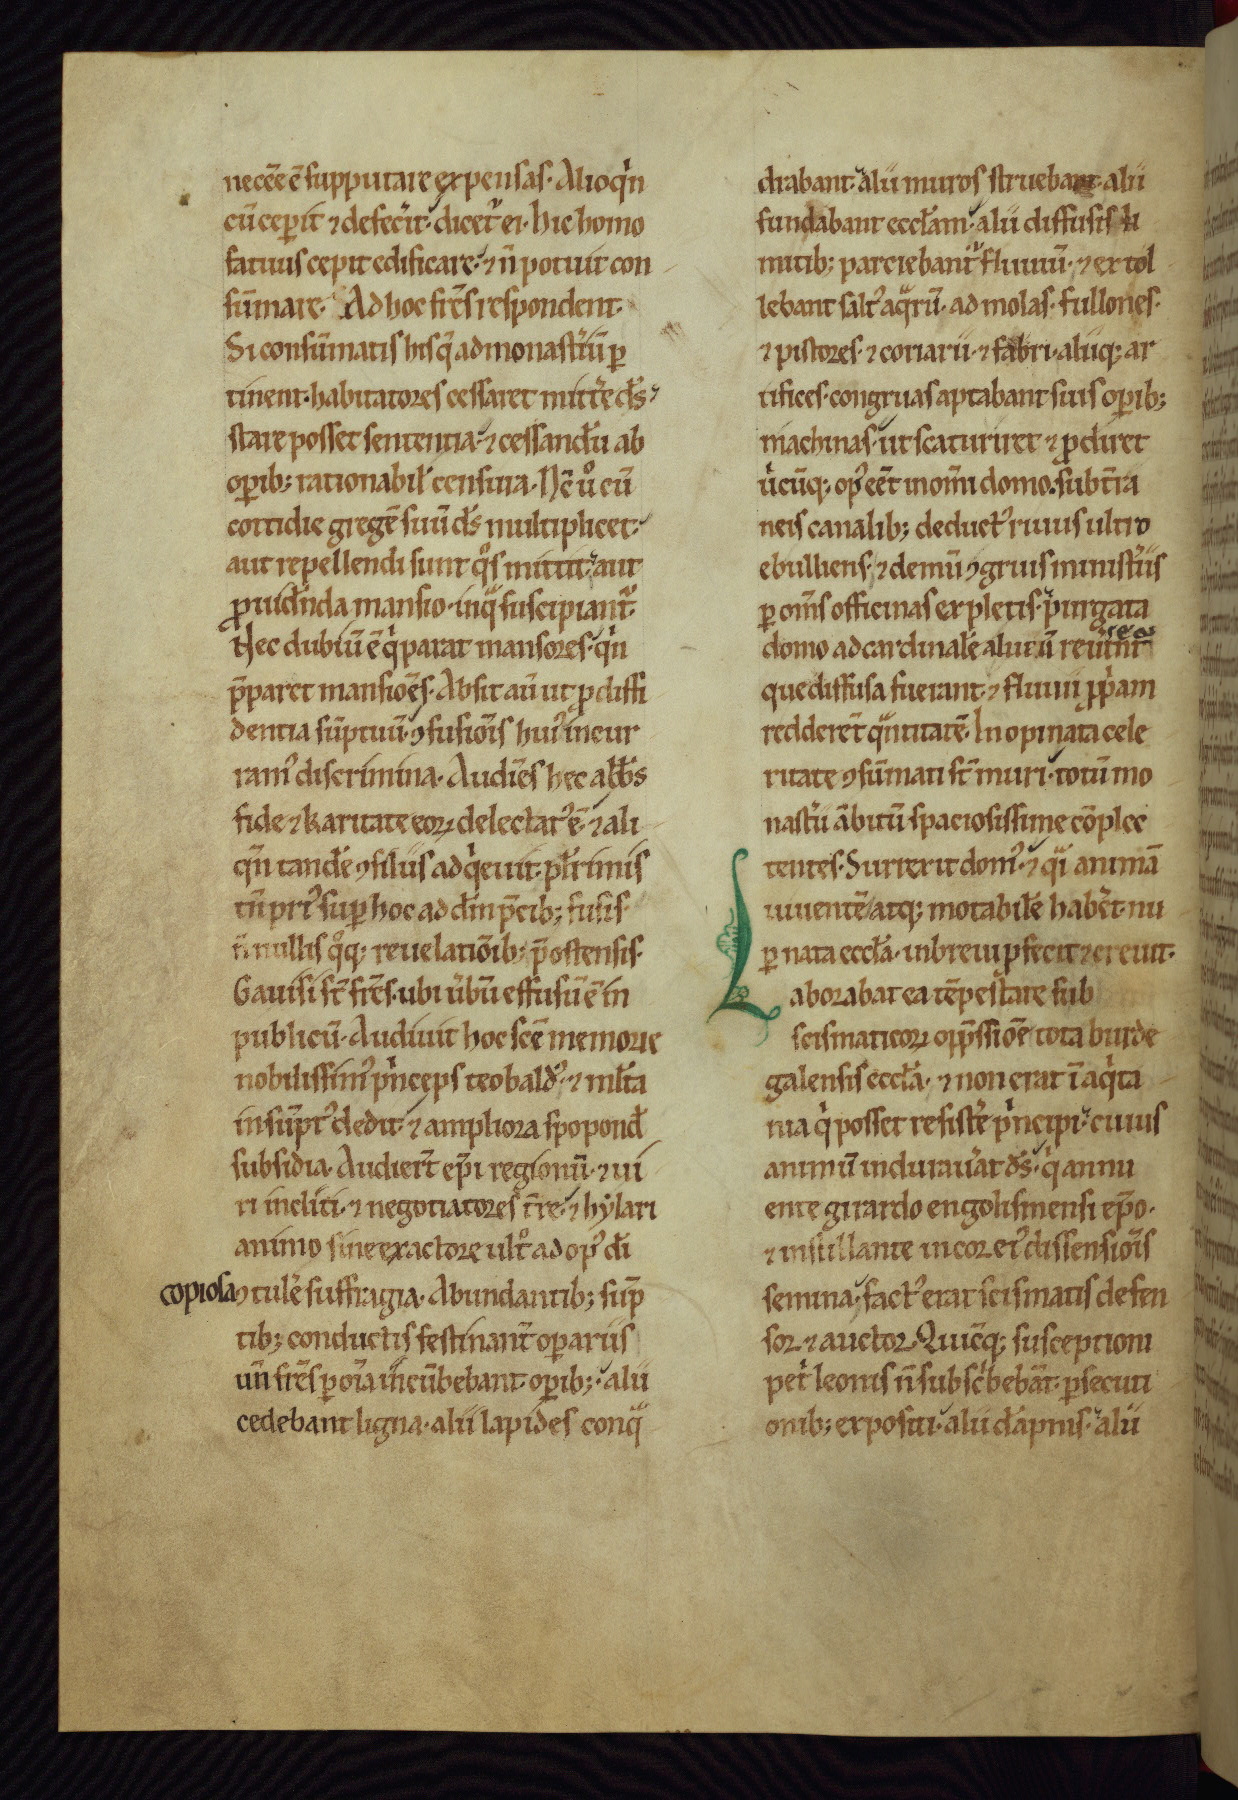 necēe ē supputare expensas. Alioq̇n
cū ceꝑit ⁊ defec̍it. dicet᷑ ei. Hic homo
fatuus cepit edificare. ⁊ n̄ potuit con
sūmare. Ad hoc fr̄s respondent.
Si consūmatis hisq̄ ad monast̍iū ꝑ
tinent. habitatores cessaret mitt̍e d̄s.
stare posset sententia. ⁊ cessandū ab
oꝑib; rationabil̓ censura. Nc̄ u̍o cū
cottidie gregē suū d̄s multiplicet.
aut repellendi sunt q̊s mittit. aut
ꝓuidn̄da mansio. inq̄ suscipiant᷑.
Nec dubiū ē q̇ parat mansores. q̇n
p̄paret mansiōes. Absit aū ut ꝓ diffi
dentia sūptuū. ꝯfusiōis hui᷒ incur
ram᷒ discrimina. Audiēs hec abb̄s
fide ⁊ karitate eoꝝ delectat᷒ ē. ⁊ ali
qn̄ tandē ꝯsiliis adq̇euit. pl̄rimis
tn̄ pri᷒ suꝑ hoc ad dm̄ p̄cib; fusis.
n̄ nullis q̊q; reuelatiōib; p̄ostensis.
Gauisi st̄ fr̄s. ubi u̍bū effusū ē in
publicū. Audiuit hoc sc̄e memorie
nobilissim᷒ p̍nceps teobald᷒. ⁊ ml̄ta
in sūpt᷒ dedit. ⁊ ampliora spopond̄
subsidia. Audiert̄ ep̄i regionū. ⁊ ui
ri incliti. ⁊ negotiatores t̄re. ⁊ hylari
animo sine exactore ult̊ ad op᷒ di
copiosa ꝯtulē suffragia. Abundantib; sūp
tib; conductis festinant̄ oꝑariis
un̄ fr̄s ꝑ oīa incūbebant oꝑib;. alii
cedebant ligna. alii lapides conq̄
drabant. alii muros struebant. alii
fundabant eccl̄am. alii diffusis li
mitib; parciebant᷑ fluuiū. ⁊ extol
lebant salt᷒ aq̄rū. ad molas. fullones.
⁊ pistores. ⁊ coriarii. ⁊ fabri. aliiq; ar
tifices. congruas aptabant suis oꝑib;
machinas. ut scaturiret ⁊ ꝓdiret
u̍cūq; op᷒ eēt in om̄i domo. subt̍ra
neis canalib; deduct᷒ riuus ultro
ebulliens. ⁊ demū ꝯgruis minist̍iis
ꝑ om̄s officinas expletis. purgata
domo ad cardinalē alueū reu̍tnt᷑
que diffusa fuerant. ⁊ fluuii ꝓp̍am
redderet̄ qn̄titatē. Inopinata cele
ritate ꝯsūmati st̄ muri. totū mo
nast̍ii ābitū spaciosissime cōplec
tentes. Surrexit dom᷒. ⁊ q̄i animā
uiuentē atq; motabilē hab̍et. nu
ꝑ nata eccl̄a. in breui ꝓfecit ⁊ creuit.
Laborabat ea tēpestate sub
scismaticoꝝ opp̄ssiōe tota burde
galensis eccl̄a. ⁊ non erat ī aq̇ta
nia q̇ posset resist̍e p̍ncipi. cuius
animū indurau̍at d̄s. q̇ annu
ente girardo engolismensi ep̄o.
⁊ instillante in cor ei᷒ dissensiōis
semina. fact᷒ erat scismatis defen
sor ⁊ auctor. Quicūq; susceptioni
pet̍ leonis n̄ subsc̍bebāt. ꝑsecuti
onib; expositi. alii dāpnis. alii